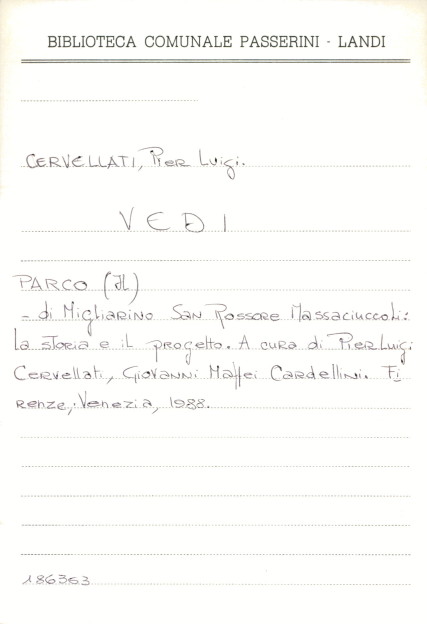 BIBLIOTECA COMUNALE PASSERINI - LANDI
CERVELLATI, Pier Luigi.
VEDI
PARCO (Il)
- di Migliarino San Rossore Massaciuccoli:
la storia e il progetto. A cura di Pier Luigi
Cervellati, Giovanni Maffei Cardellini. Fi
renze, Venezia, 1988.
186353